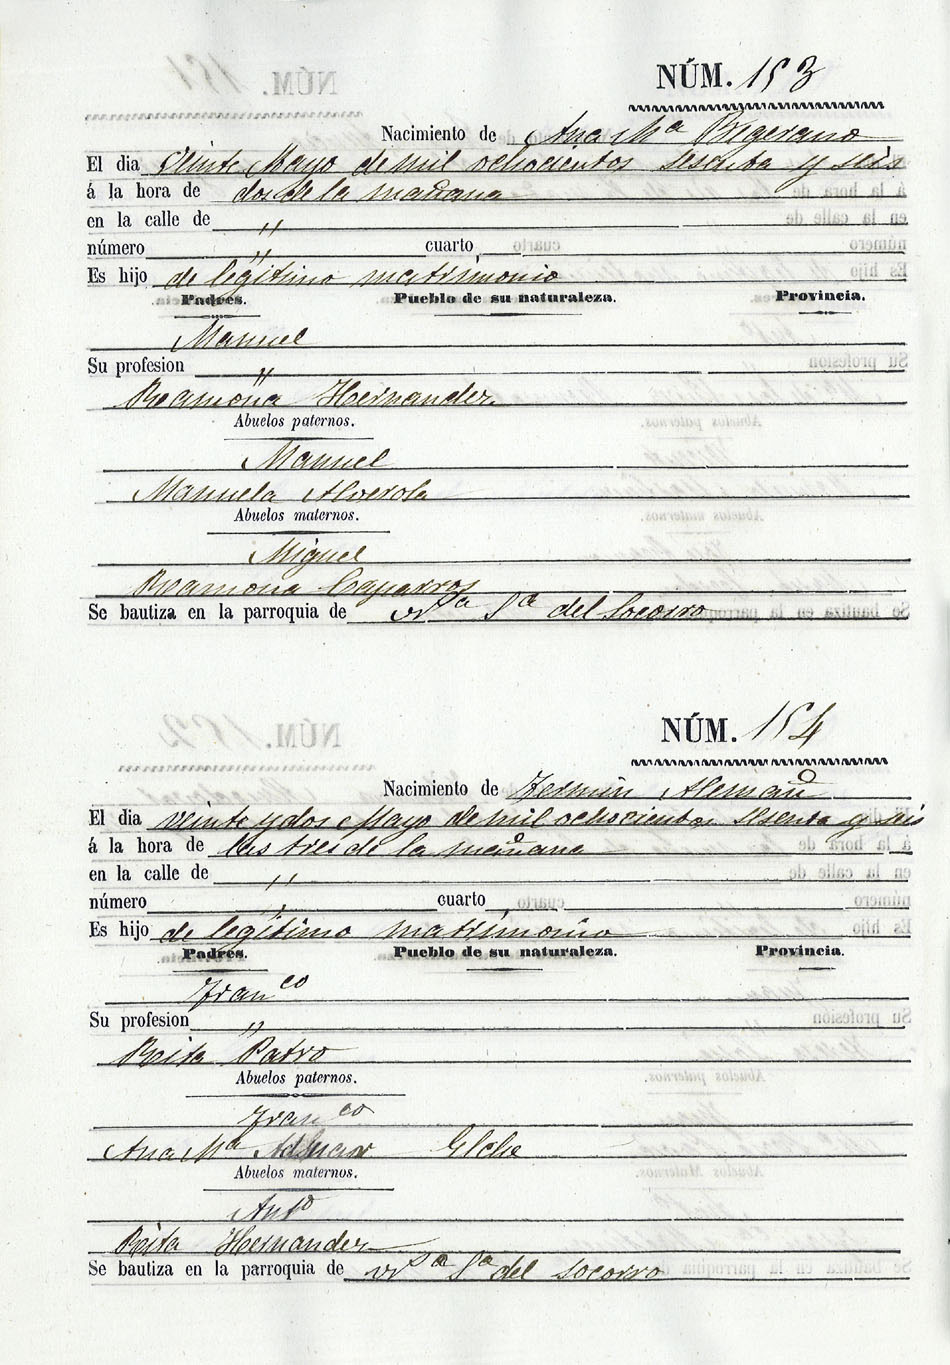 NÚM. 153
Nacimiento de Ana Mª Bigerano
El dia Veinte Mayo de mil ochocientos sesenta y seis
á la hora de dos de la mañana
en la calle de "
número " cuarto
Es hijo de legítimo matrimonio
Padres. Pueblo de su naturaleza. Provincia.
Manuel
Su profesion "
Ramona Hernandez
Abuelos paternos.
Manuel
Manuela Alverola
Abuelos maternos.
Miguel
Ramona Caparros
Se bautiza en la parroquia de Nrª Sª del Socorro
NÚM. 154
Nacimiento de Fermin Alemañ
El dia veinte y dos Mayo de mil ochocientos sesenta y seis
á la hora de las tres de la mañana
en la calle de "
número " cuarto
Es hijo de legítimo matrimonio
Padres. Pueblo de su naturaleza. Provincia.
Franco
Su profesion "
Rita Patro
Abuelos paternos.
Franco
Ana Mª Elche
Abuelos maternos.
Anto
Rita Hernandez
Se bautiza en la parroquia de Nrª Sª del Socorro